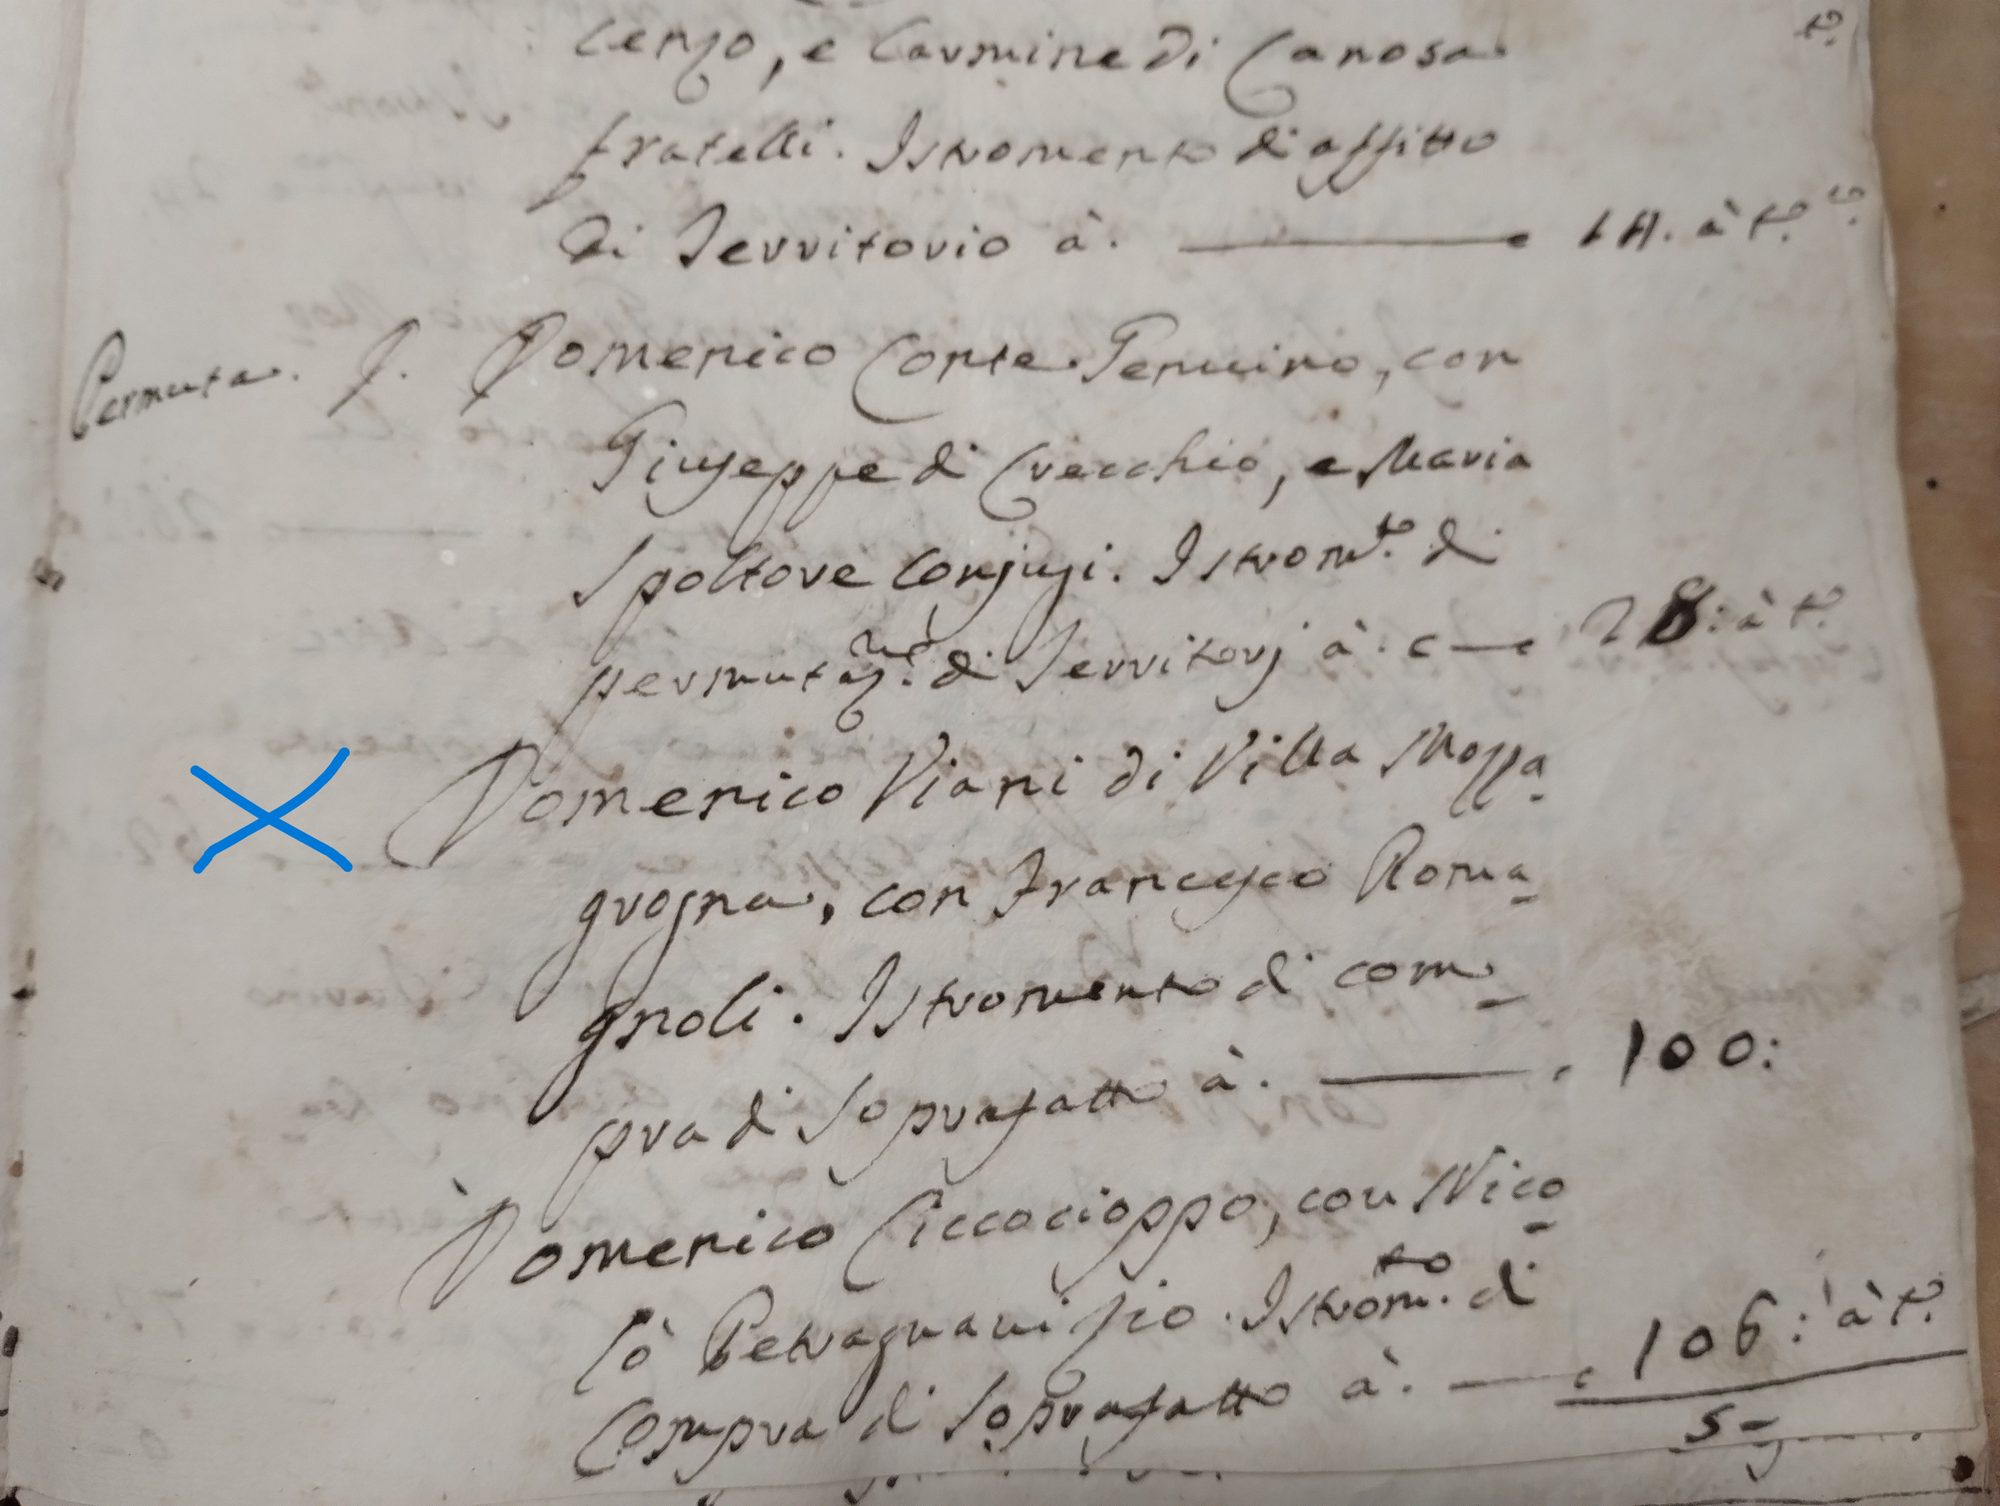 cenzo, e Carmine di Canosa
fratelli. Istromento di affitto
di Territorio à. 14. à t.º
Permuta. J. Domenico Conte Peruino, con
Giuseppe di Crecchio, e Maria
Spoltore Conjugi. Istrom.to di
permutaz.ne di Territorj à. 28: à t.º
Domenico Viani di Villa Mozza-
grogna, con Francesco Roma-
gnoli. Istromento di com-
pra di Soprafatto à. 100:
Domenico Ciccocioppo, con Nico-
lò Petragnani zio. Istrom.to di
Compra di Soprafatto à. 106: à t.º